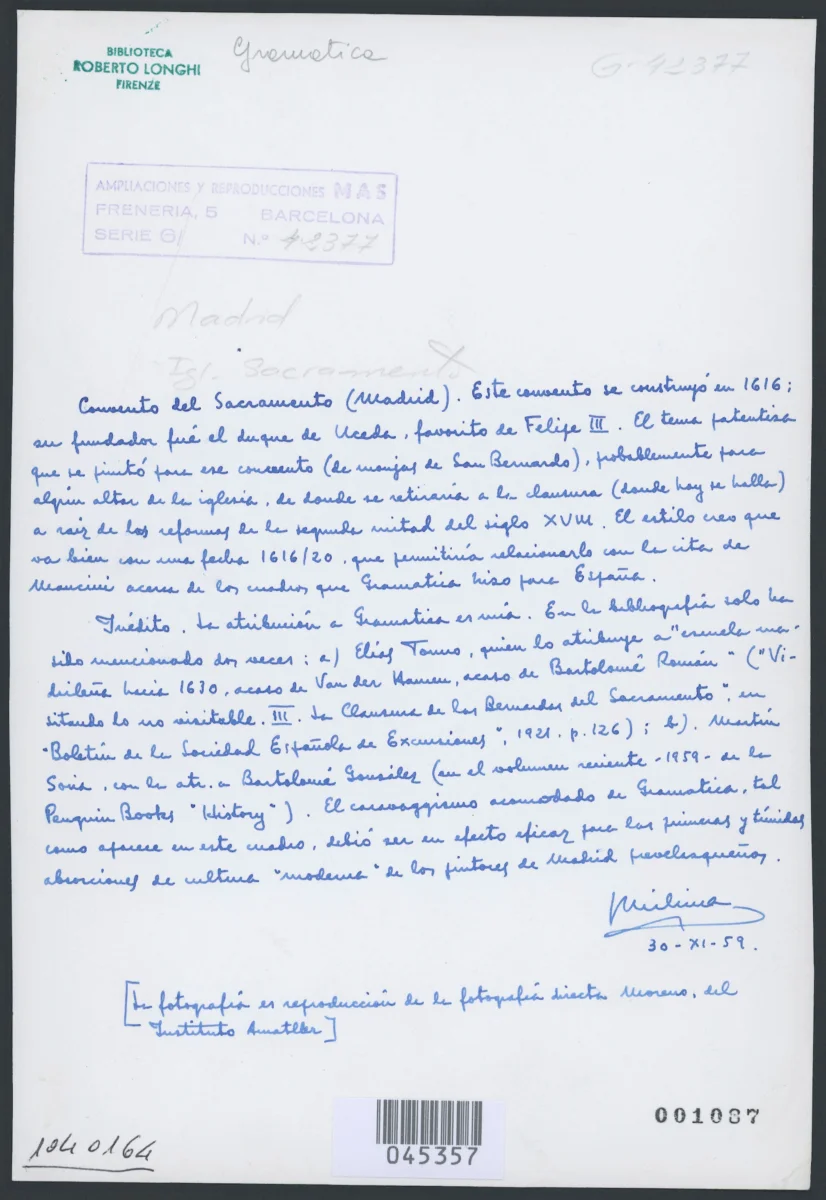 BIBLIOTECA
ROBERTO LONGHI
FIRENZE
Gramatica
G-42377
AMPLIACIONES Y REPRODUCCIONES MAS
FRENERIA, 5 BARCELONA
SERIE G/ N.º 42377
Madrid
Igl. Sacramento
Convento del Sacramento (Madrid). Este convento se construyó en 1616;
su fundador fué el duque de Uceda, favorito de Felipe III. El tema patentiza
que se pintó para ese convento (de monjas de San Bernardo), probablemente para
algún altar de la iglesia, de donde se retiraría a la clausura (donde hoy se halla)
a raiz de las reformas de la segunda mitad del siglo XVIII. El estilo creo que
va bien con una fecha 1616/20, que permitiría relacionarlo con la cita de
Mancini acerca de los cuadros que Gramatica hizo para España.
Inédito. La atribución a Gramatica es mía. En la bibliografía solo ha
sido mencionado dos veces: a) Elías Tormo, quien lo atribuye a "escuela ma-
drileña hacia 1630, acaso de Van der Hamen, acaso de Bartolomé Román" ("Vi-
sitando lo no visitable. III. La Clausura de las Bernardas del Sacramento", en
"Boletín de la Sociedad Española de Excursiones", 1921. p. 126); b). Martín
Soria, con la atr. a Bartolomé González (en el volumen reciente -1959- de la
Penguin Books "History"). El caravaggismo acomodado de Gramatica, tal
como aparece en este cuadro, debió ser en efecto eficaz para las primeras y tímidas
absorciones de cultura "moderna" de los pintores de Madrid prevelasqueños.
30-XI-59.
[La fotografía es reproducción de la fotografía directa Moreno, del
Instituto Amatller]
001087
1040164
045357